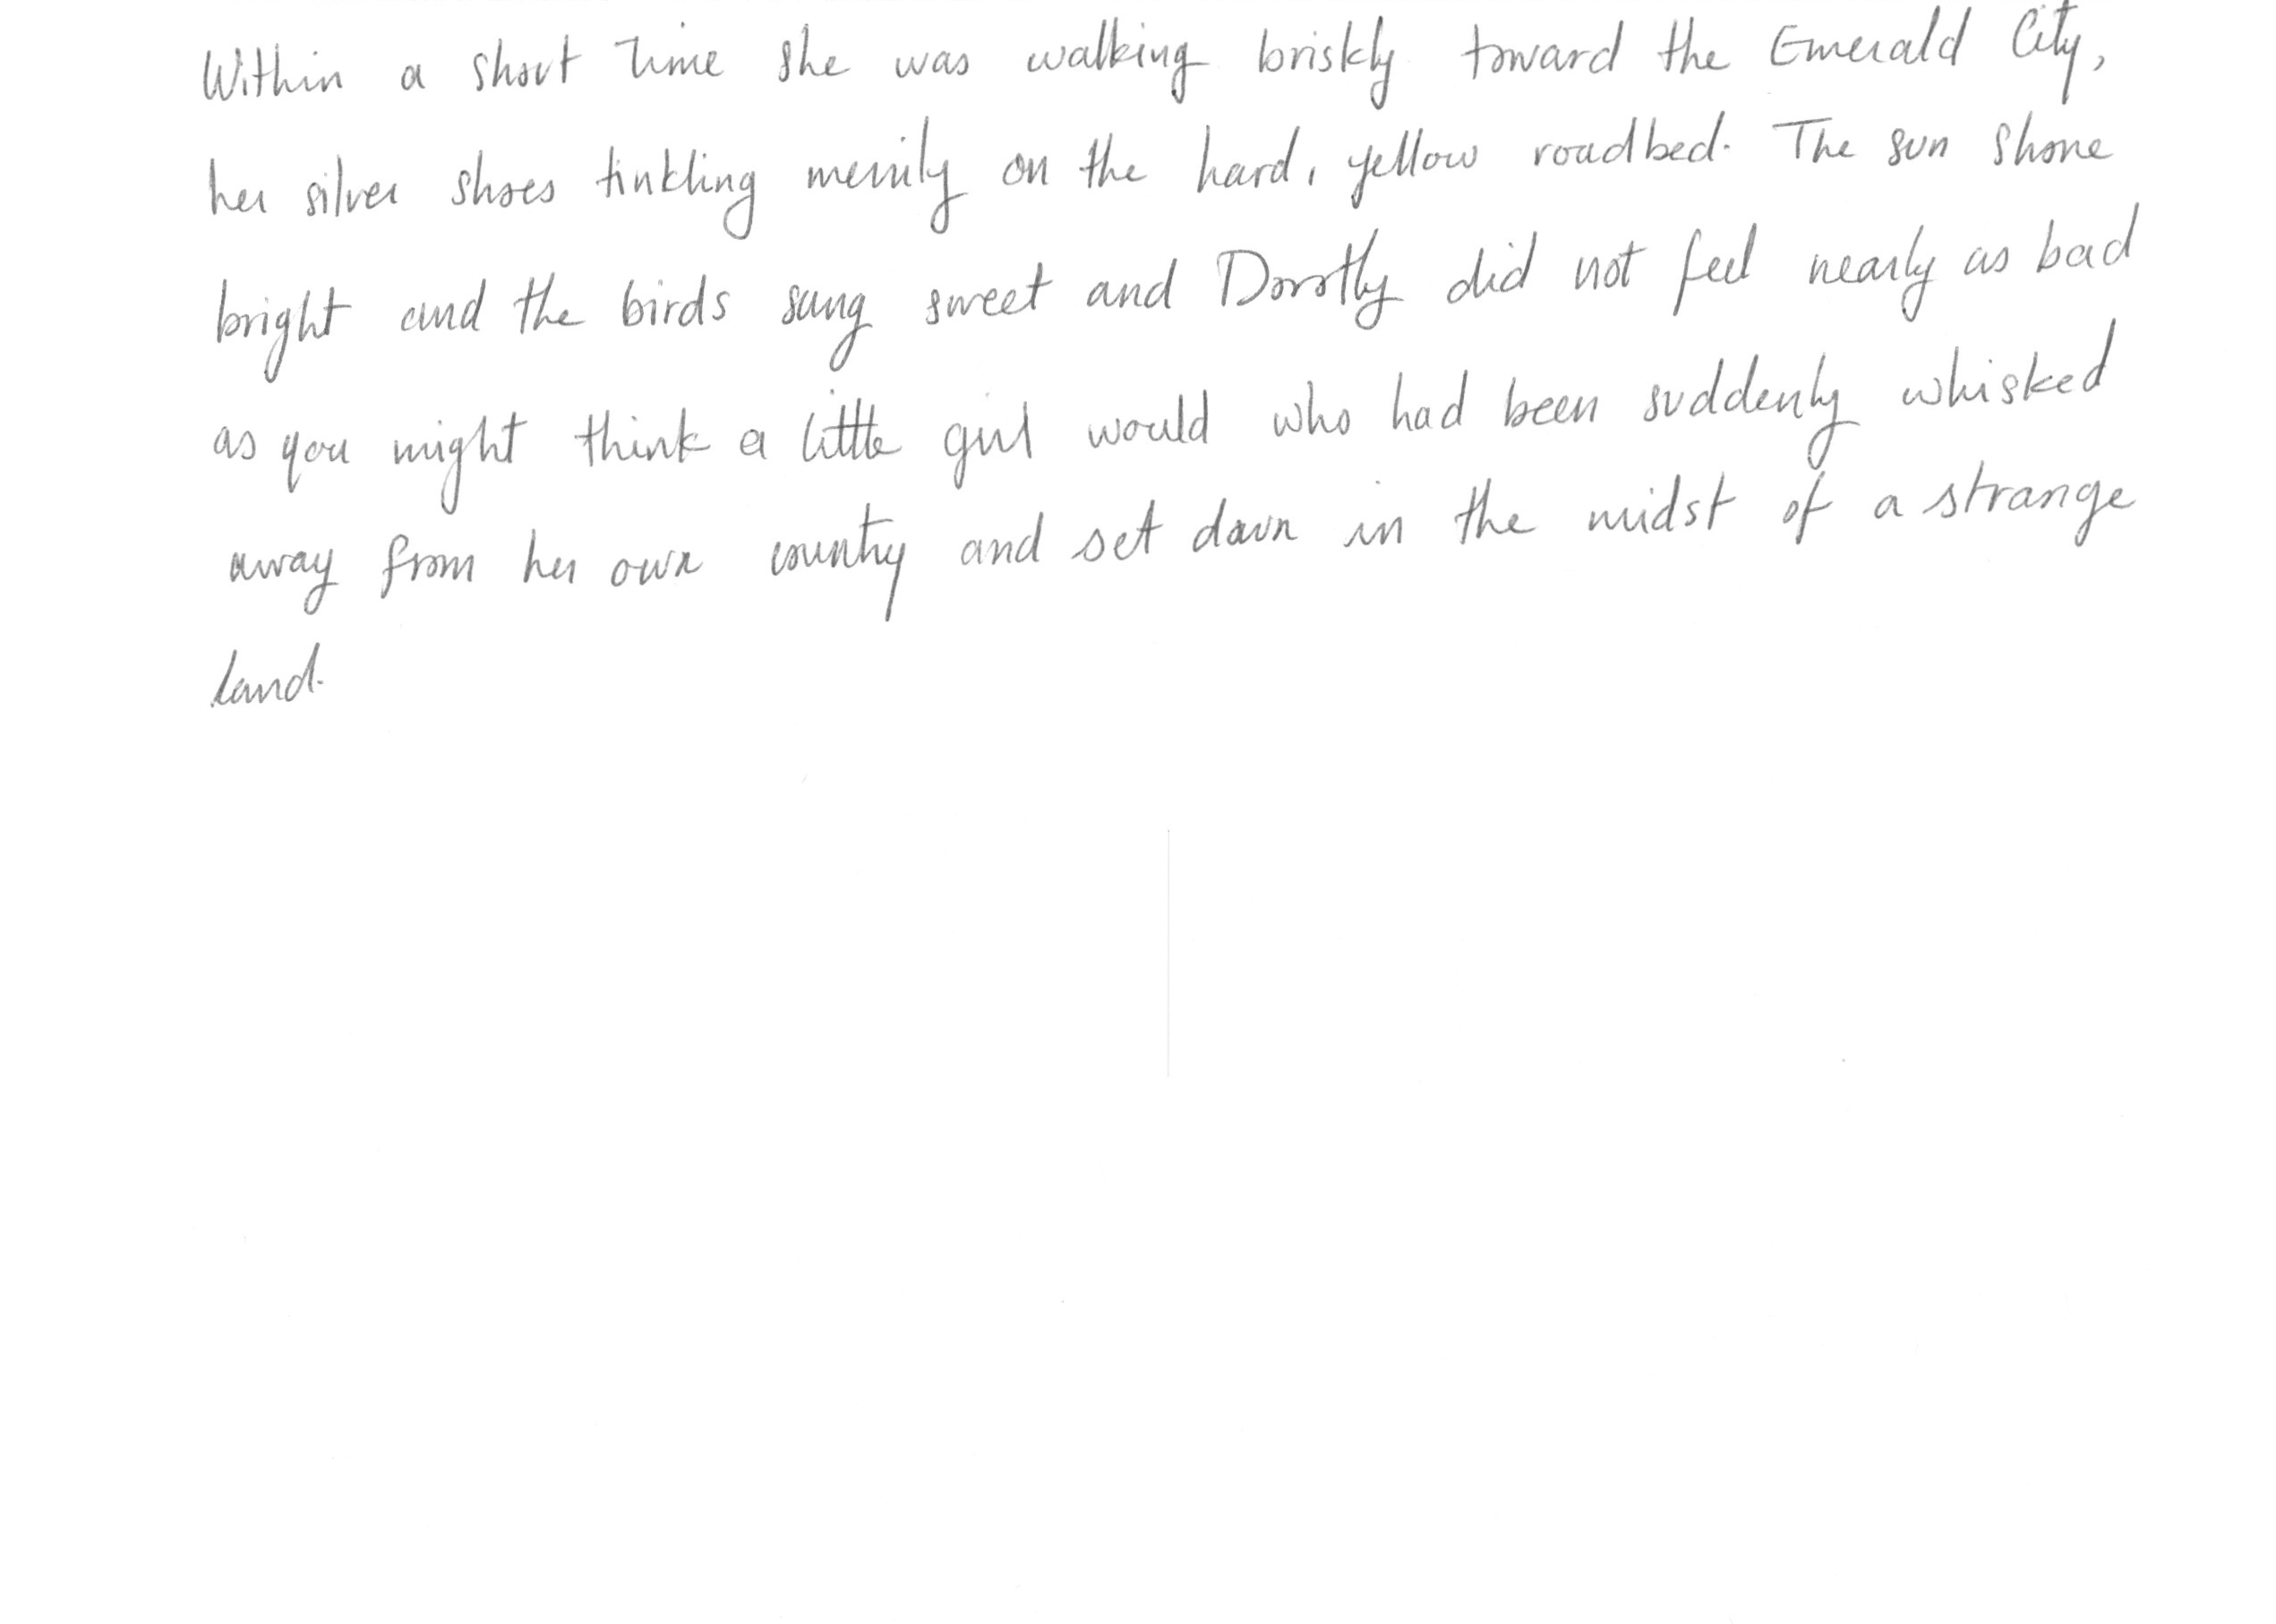 Within a short time she was walking briskly toward the Emerald City,
her silver shoes tinkling merrily on the hard, yellow roadbed. The sun shone
bright and the birds sang sweet and Dorothy did not feel nearly as bad
as you might think a little girl would who had been suddenly whisked
away from her own country and set down in the midst of a strange
land.